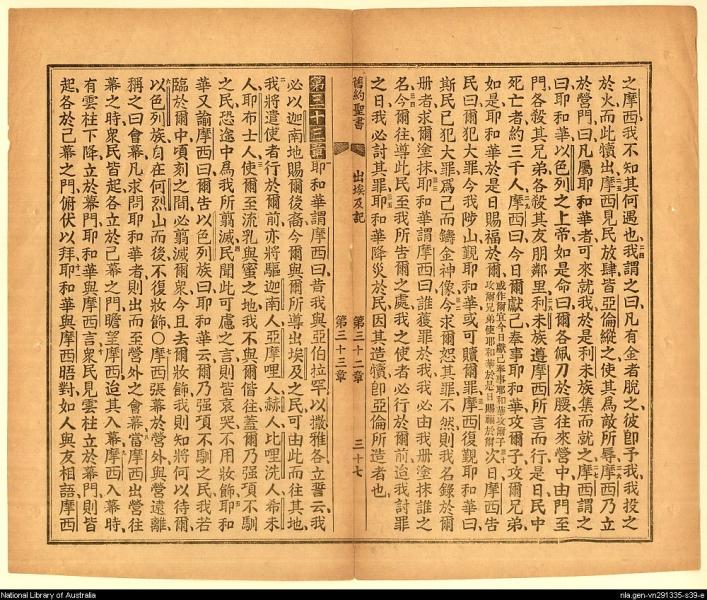 之摩西我不知其何遇也我謂之曰凡有金者脫之彼卽予我我投之
於火而此犢出摩西見民放肆皆亞倫縱之使其爲敵所辱摩西乃立
於營門曰凡屬耶和華者可來就我於是利未族集而就之摩西謂之
曰耶和華以色列之上帝如是命曰爾各佩刀於腰往來營中由門至
門各殺其兄弟各殺其友朋鄰里利未族遵摩西所言而行是日民中
死亡者約三千人摩西曰今日爾獻己奉事耶和華攻爾子攻爾兄弟
如是耶和華於是日賜福於爾或作爾宜今日獻己奉事耶和華攻爾子攻爾兄弟使耶和華於是日賜福於爾次日摩西告
民曰爾犯大罪今我陟山覲耶和華或可贖爾罪摩西復覲耶和華曰
斯民已犯大罪爲己而鑄金神像今求爾恕其罪不然則我名錄於爾
册者求爾塗抹耶和華謂摩西曰誰獲罪於我我必由我册塗抹誰之
名今爾往導此民至我所告爾之處我之使者必行於爾前迨我討罪
之日我必討其罪耶和華降災於民因其造犢卽亞倫所造者也
舊約聖書 出埃及記 第三十二章 第三十三章 三十七
第三十三章耶和華謂摩西曰昔我與亞伯拉罕以撒雅各立誓云我
必以迦南地賜爾後裔今爾與爾所導出埃及之民可由此而往其地
我將遣使者行於爾前亦將驅迦南人亞摩哩人赫人比哩洗人希未
人耶布士人使爾至流乳與蜜之地我不與爾偕往蓋爾乃强項不馴
之民恐途中爲我所翦滅民聞此可慮之言則皆哀哭不用妝飾耶和
華又諭摩西曰爾告以色列族曰耶和華云爾乃强項不馴之民我若
臨於爾中頃刻之間必翦滅爾衆今且去爾妝飾我則知將何以待爾
以色列族自在何烈山而後不復妝飾〇摩西張幕於營外與營遠離
稱之曰會幕凡求問耶和華者則出而至營外之會幕當摩西出營往
幕之時衆民皆起各立於己幕之門瞻望摩西迨其入幕摩西入幕時
有雲柱下降立於幕門耶和華與摩西言衆民見雲柱立於幕門則皆
起各於己幕之門俯伏以拜耶和華與摩西晤對如人與友相語摩西
National Library of Australia
nla.gen-vn291335-s39-e